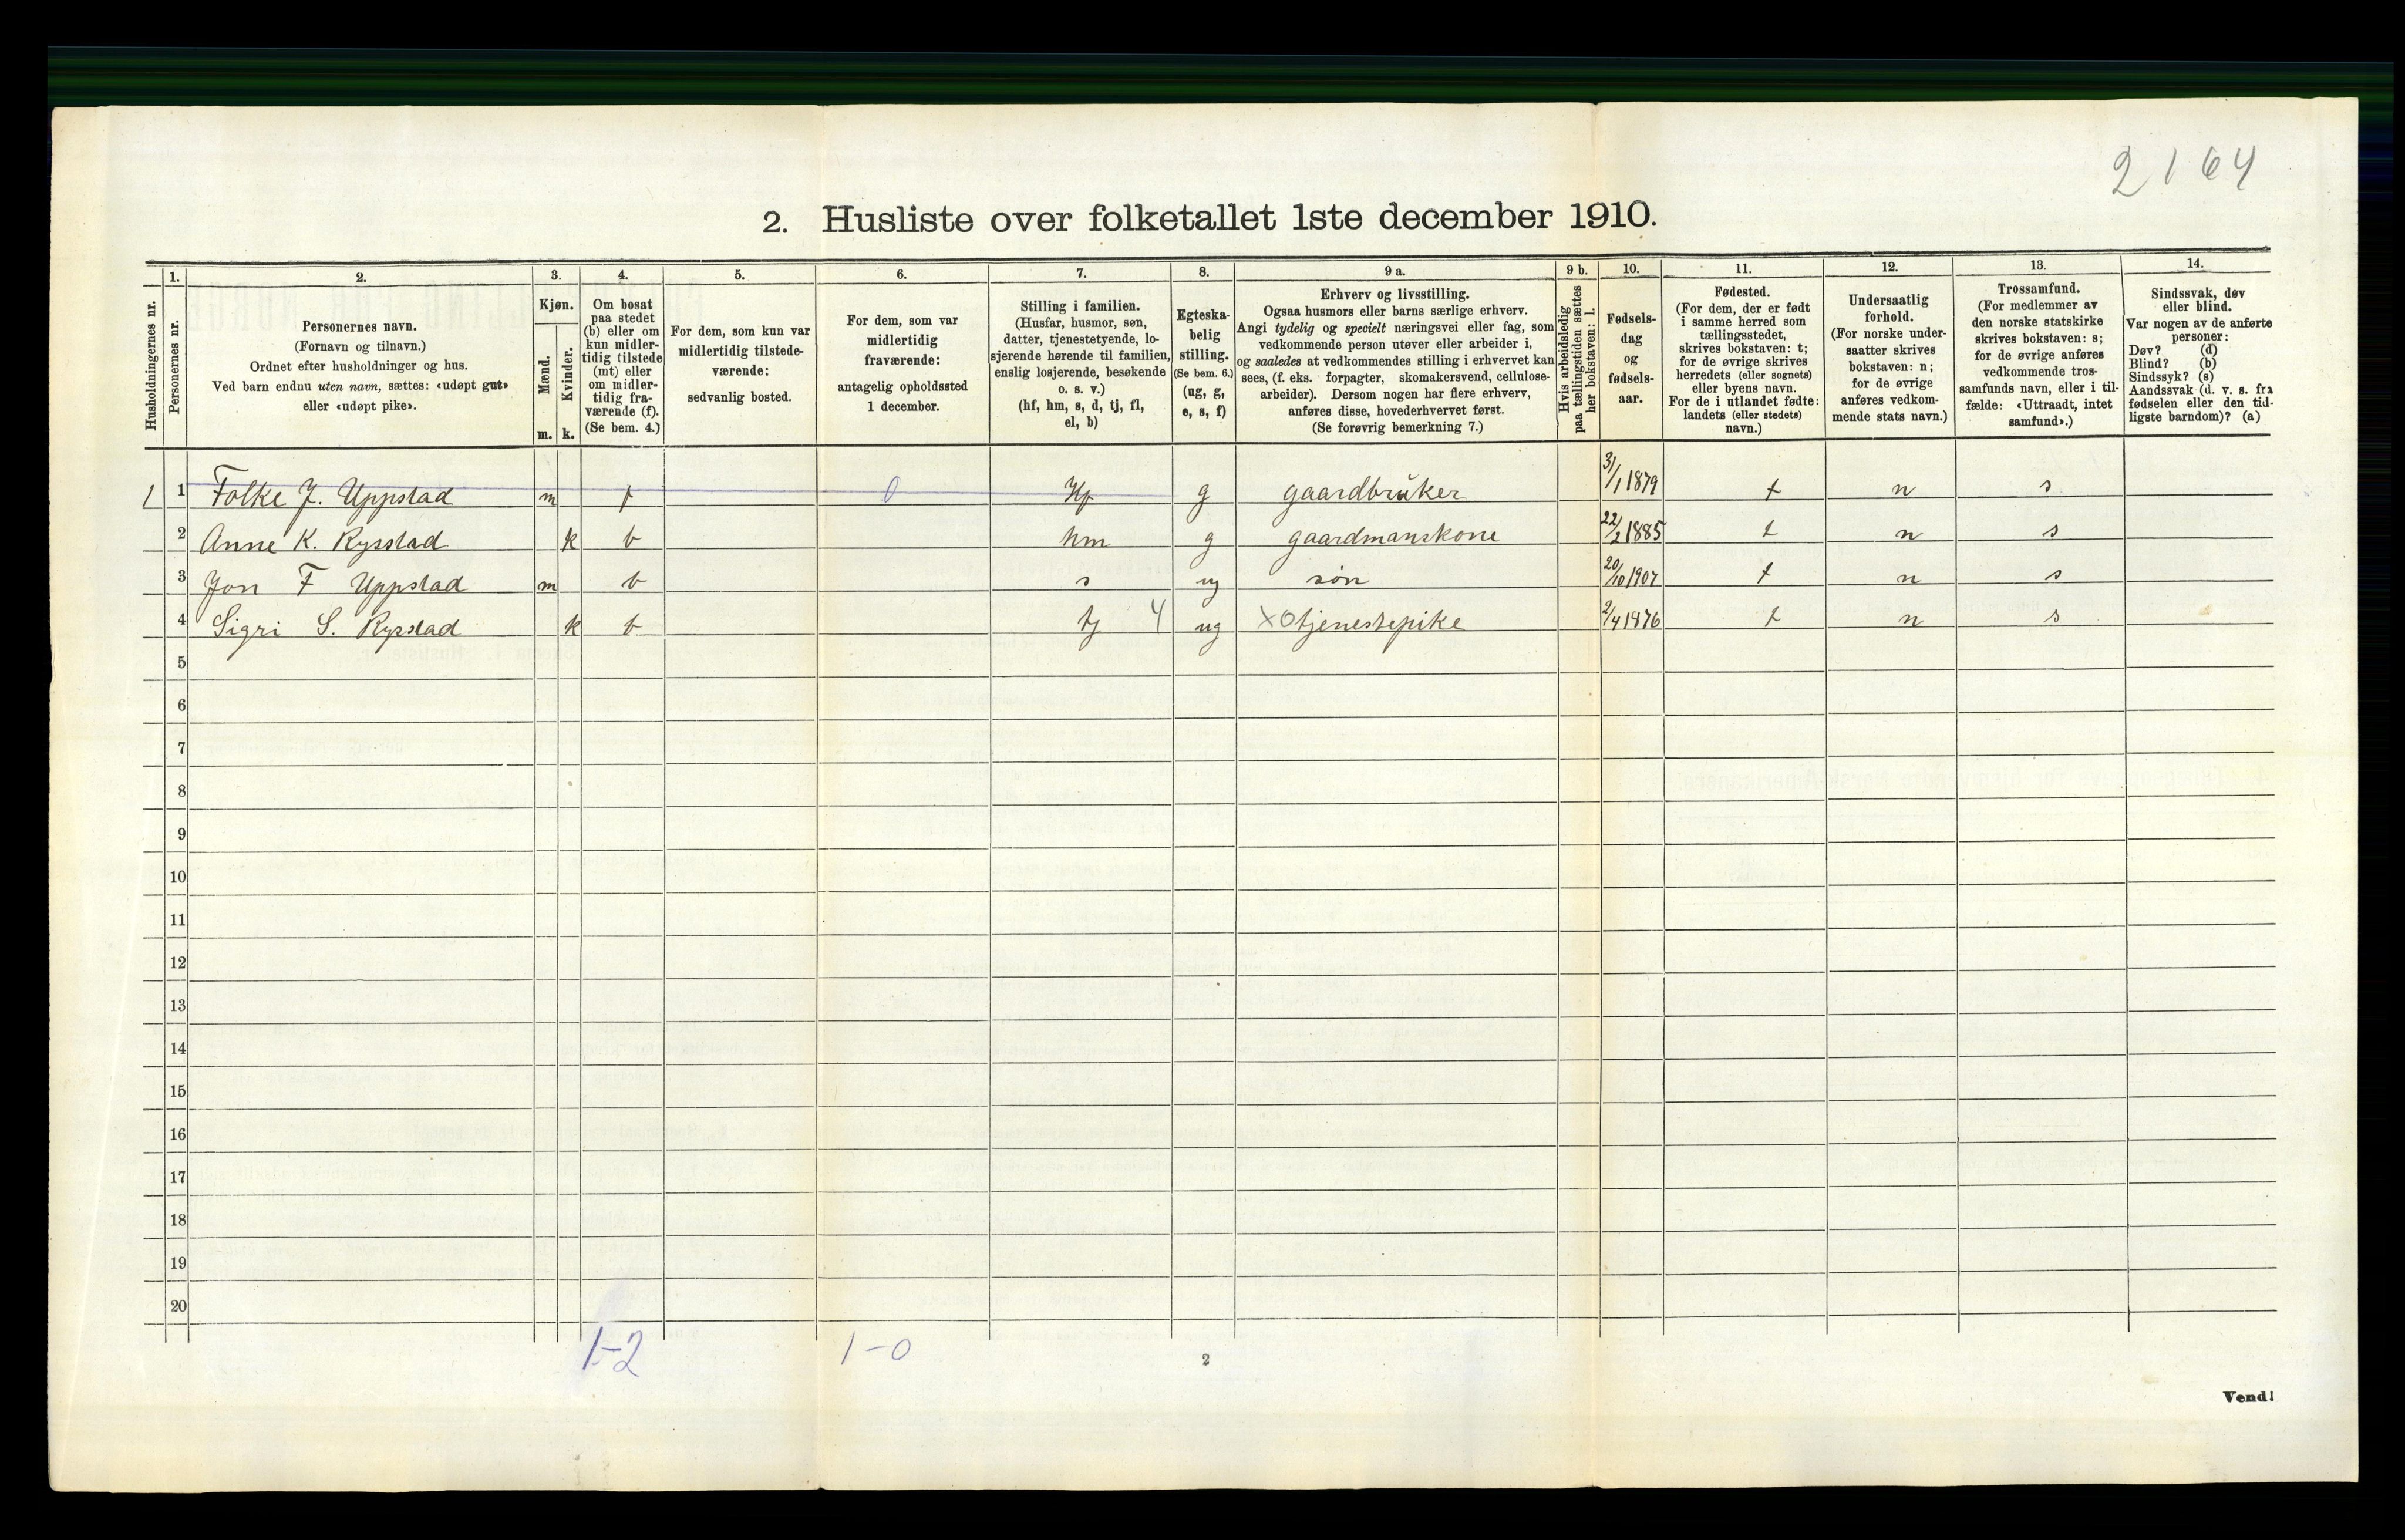 2164
2. Husliste over folketallet 1ste december 1910.
Husholdningernes nr.
1.
Personernes nr.
2.
Personernes navn.
(Fornavn og tilnavn.)
Ordnet efter husholdninger og hus.
Ved barn endnu uten navn, sættes: «udøpt gut»
eller «udøpt pike».
3.
Kjøn.
Mænd.
Kvinder.
m. k.
4.
Om bosat
paa stedet
(b) eller om
kun midler-
tidig tilstede
(mt) eller
om midler-
tidig fra-
værende (f).
(Se bem. 4.)
5.
For dem, som kun var
midlertidig tilstede-
værende:
sedvanlig bosted.
6.
For dem, som var
midlertidig
fraværende:
antagelig opholdssted
1 december.
7.
Stilling i familien.
(Husfar, husmor, søn,
datter, tjenestetyende, lo-
sjerende hørende til familien,
enslig losjerende, besøkende
o. s. v.)
(hf, hm, s, d, tj, fl,
el, b)
8.
Egteska-
belig
stilling.
(Se bem. 6.)
(ug, g,
e, s, f)
9 a.
Erhverv og livsstilling.
Ogsaa husmors eller barns særlige erhverv.
Angi tydelig og specielt næringsvei eller fag, som
vedkommende person utøver eller arbeider i,
og saaledes at vedkommendes stilling i erhvervet kan
sees, (f. eks. forpagter, skomakersvend, cellulose-
arbeider). Dersom nogen har flere erhverv,
anføres disse, hovederhvervet først.
(Se forøvrig bemerkning 7.)
9 b.
Hvis arbeidsledig
paa tællingstiden sættes
her bokstaven: l.
10.
Fødsels-
dag
og
fødsels-
aar.
11.
Fødested.
(For dem, der er født
i samme herred som
tællingsstedet,
skrives bokstaven: t;
for de øvrige skrives
herredets (eller sognets)
eller byens navn.
For de i utlandet fødte:
landets (eller stedets)
navn.)
12.
Undersaatlig
forhold.
(For norske under-
saatter skrives
bokstaven: n;
for de øvrige
anføres vedkom-
mende stats navn.)
13.
Trossamfund.
(For medlemmer av
den norske statskirke
skrives bokstaven: s;
for de øvrige anføres
vedkommende tros-
samfunds navn, eller i til-
fælde: «Uttraadt, intet
samfund».)
14.
Sindssvak, døv
eller blind.
Var nogen av de anførte
personer:
Døv? (d)
Blind? (b)
Sindssyk? (s)
Aandssvak (d. v. s. fra
fødselen eller den tid-
ligste barndom)? (a)
1 1 Folke J. Uppstad m f 0 Hf g gaardbruker 31/1 1879 t n s
2 Anne K. Rysstad k b hm g gaardmanskone 22/2 1885 t n s
3 Jon F Uppstad m b s ug søn 20/10 1907 t n s
4 Sigri S. Rysstad k b tj 4 ug XO tjenestepike 2/4 1876 t n s
5
6
7
8
9
10
11
12
13
14
15
16
17
18
19
20
1-2 1-0
2
Vend!